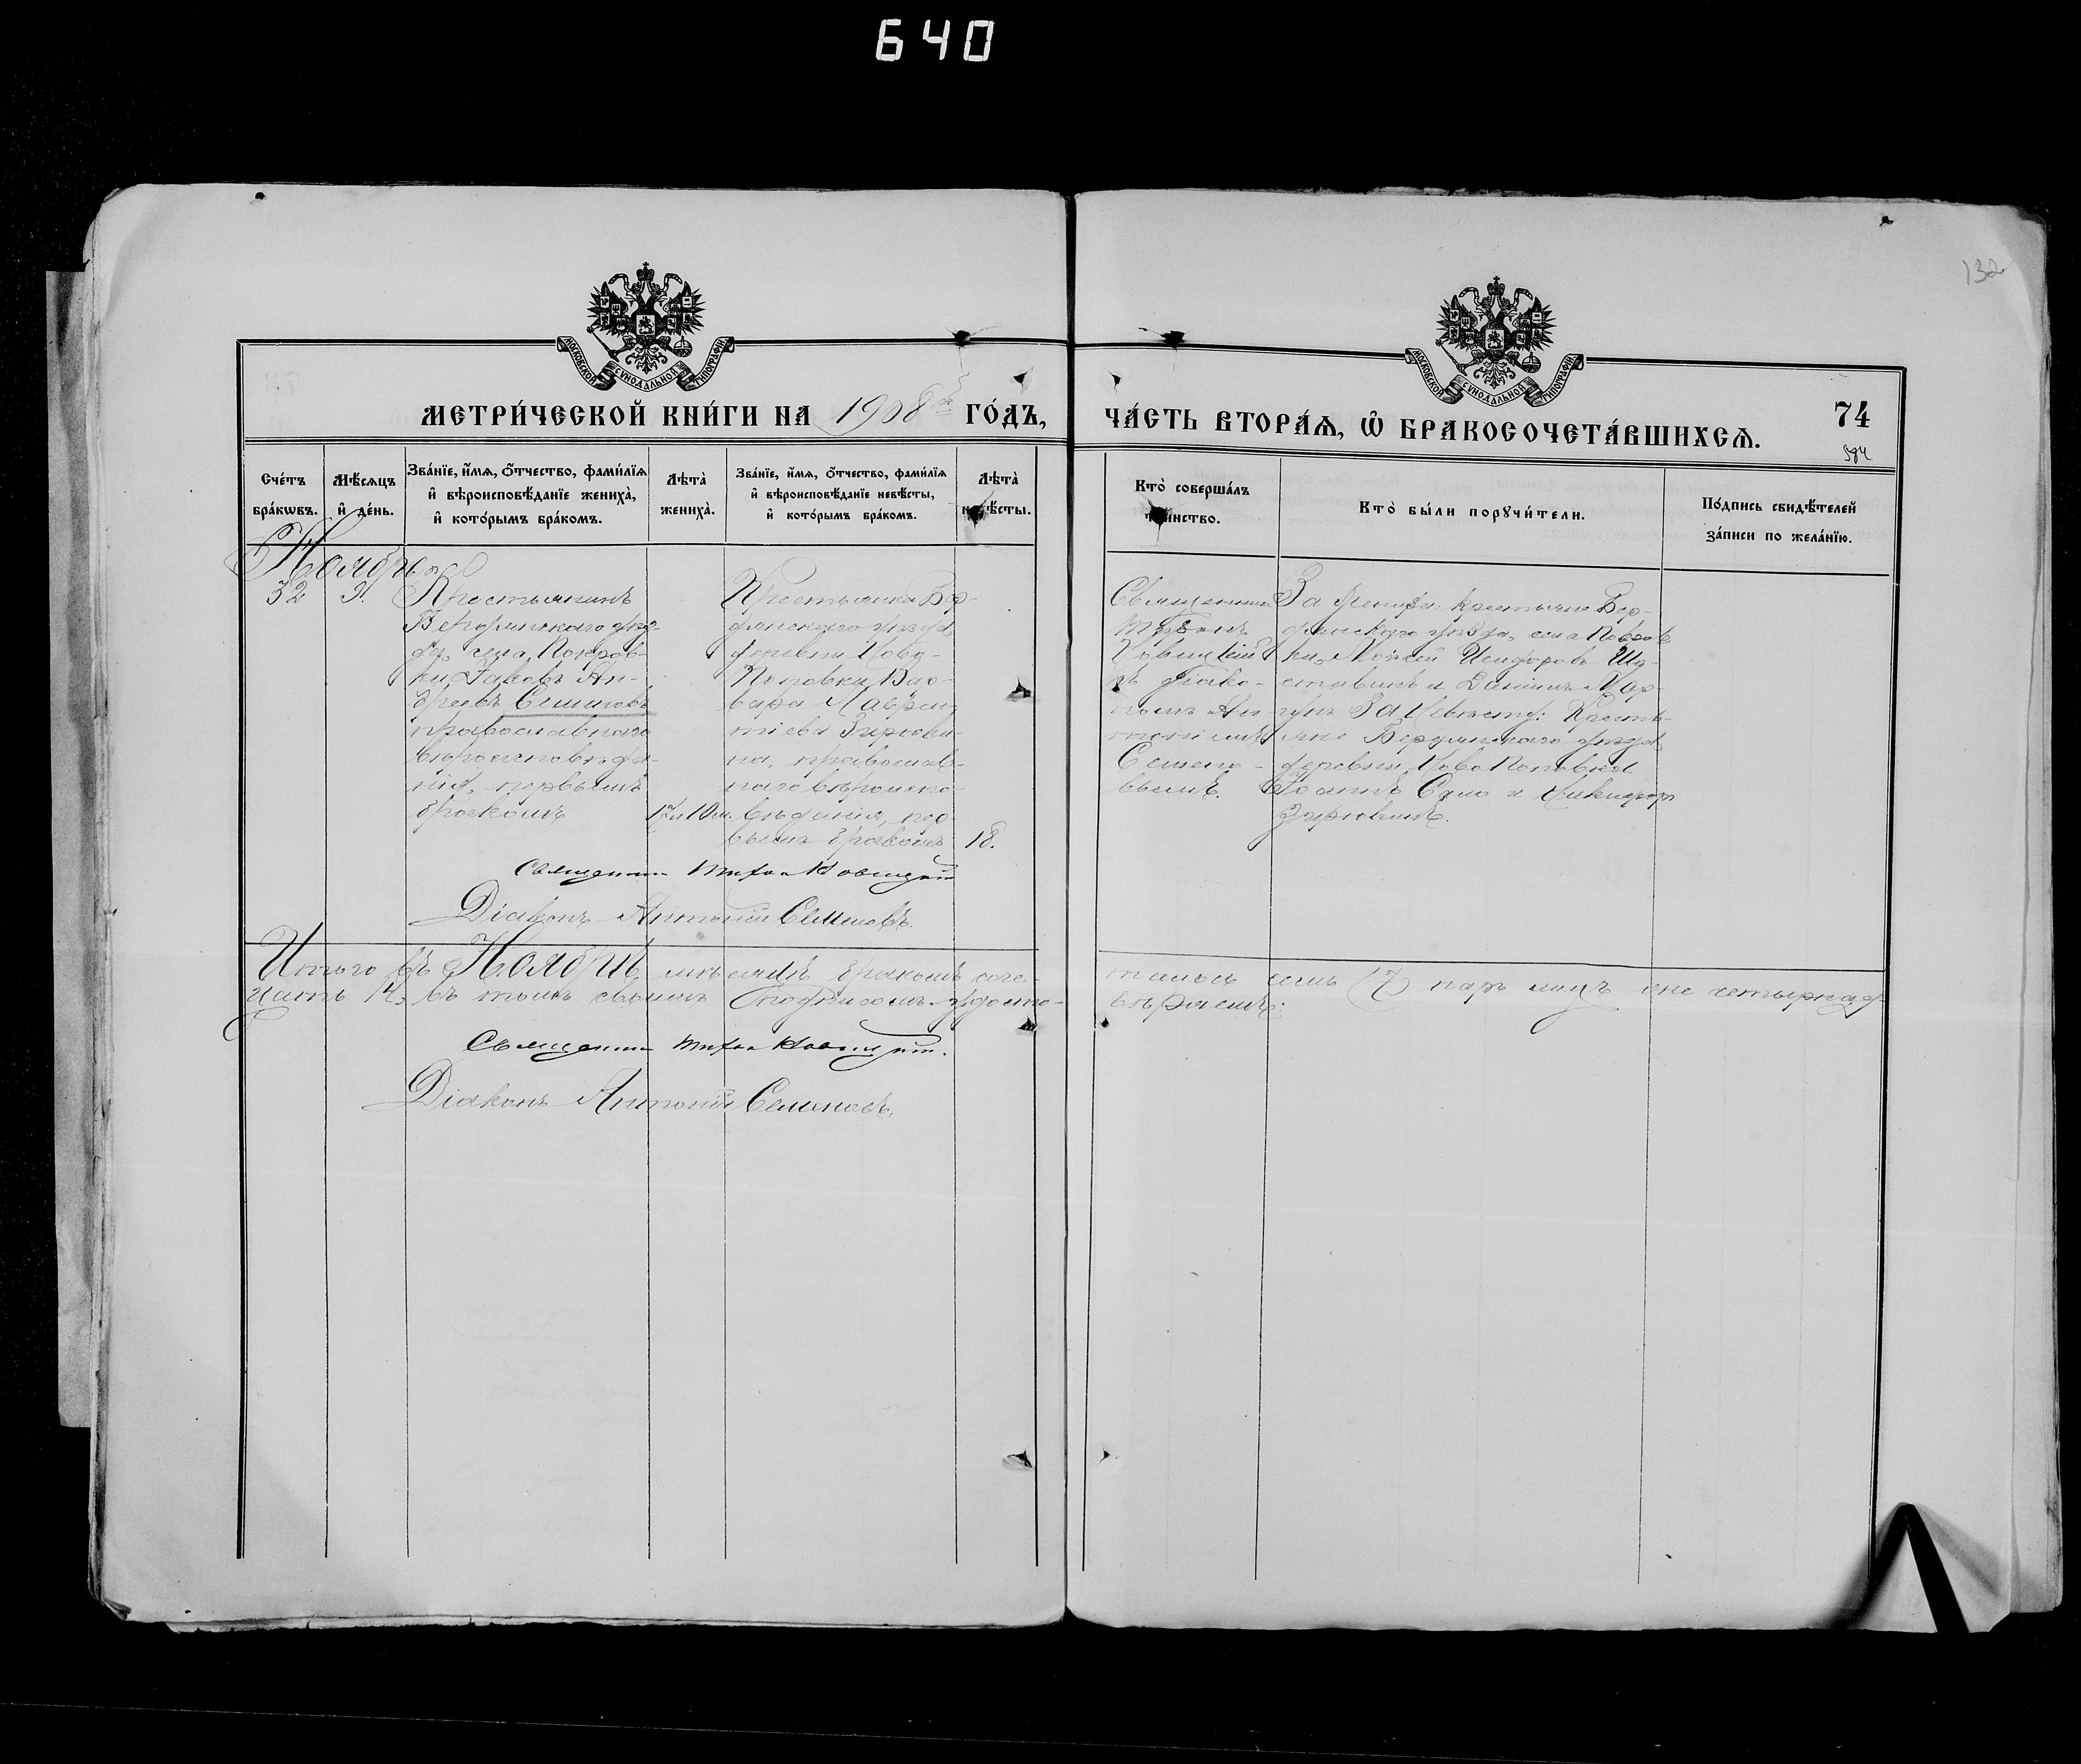 640
132
МОСКОВСКОЙ СѴНОДАЛЬНОЙ ТИПОГРАФІИ
МОСКОВСКОЙ СѴНОДАЛЬНОЙ ТИПОГРАФІИ
МЕТРИ́ЧЕСКОЙ КНИ́ГИ НА 1908 ГО́ДЪ,
ЧА́СТЬ ВТОРА́Ѧ, Ѽ БРАКОСОЧЕТА́ВШИХСѦ.
74
584
Сче́тъ
бра́кѡвъ.
Мѣ́сѧцъ
и҆ де́нь.
Зва́нїе, и҆́мѧ, ѻ҆́тчество, фами́лїѧ
и҆ вѣроисповѣ́данїе жениха̀,
и҆ кото́рымъ бра́комъ.
Лѣта̀
жениха̀.
Зва́нїе, и҆́мѧ, ѻ҆́тчество, фами́лїѧ
и҆ вѣроисповѣ́данїе невѣ́сты,
и҆ кото́рымъ бра́комъ.
Лѣта̀
невѣ́сты.
Кто̀ соверша́лъ
та́инство.
Кто̀ бы́ли порꙋчи́тели.
По́дпись свидѣ́телей
за́писи по жела́нїю.
Ноябрь
32
9.
Крестьянинъ
Бердянскаго уѣз-
да, села Покров-
ки Іаковъ Ан-
дреевъ Семеновъ
православнаго
вѣроисповѣда-
нія, первымъ
бракомъ
17 л 10 м.
Крестьянка Бер-
дянскаго уѣзда
деревни Ново-
Поповки Вар-
вара Лаврен-
тіева
на, православ-
наго вѣроиспо-
вѣданія, пер-
вымъ бракомъ
18.
Священникъ
Трофимъ
Новицкій
съ діако-
номъ Ан-
тоніемъ
Семено-
вымъ.
За жениха: крестьяне Бер-
дянскаго уѣзда, села Покров-
ки, Моисей Исидоровъ
и Даніилъ
За невѣсту: Кресть-
яне Бердянскаго уѣзда
деревни Ново Поповки
Іоаннъ и Никифоръ
Священникъ Новицкій
Діаконъ Антоній Семеновъ.
Итого въ Ноябрѣ мѣсяцѣ бракомъ соче-
талось семь (7) паръ лицъ
14, въ томъ своимъ подписомъ удосто-
вѣряемъ:
Священникъ Новицкій.
Діаконъ Антоній Семеновъ.